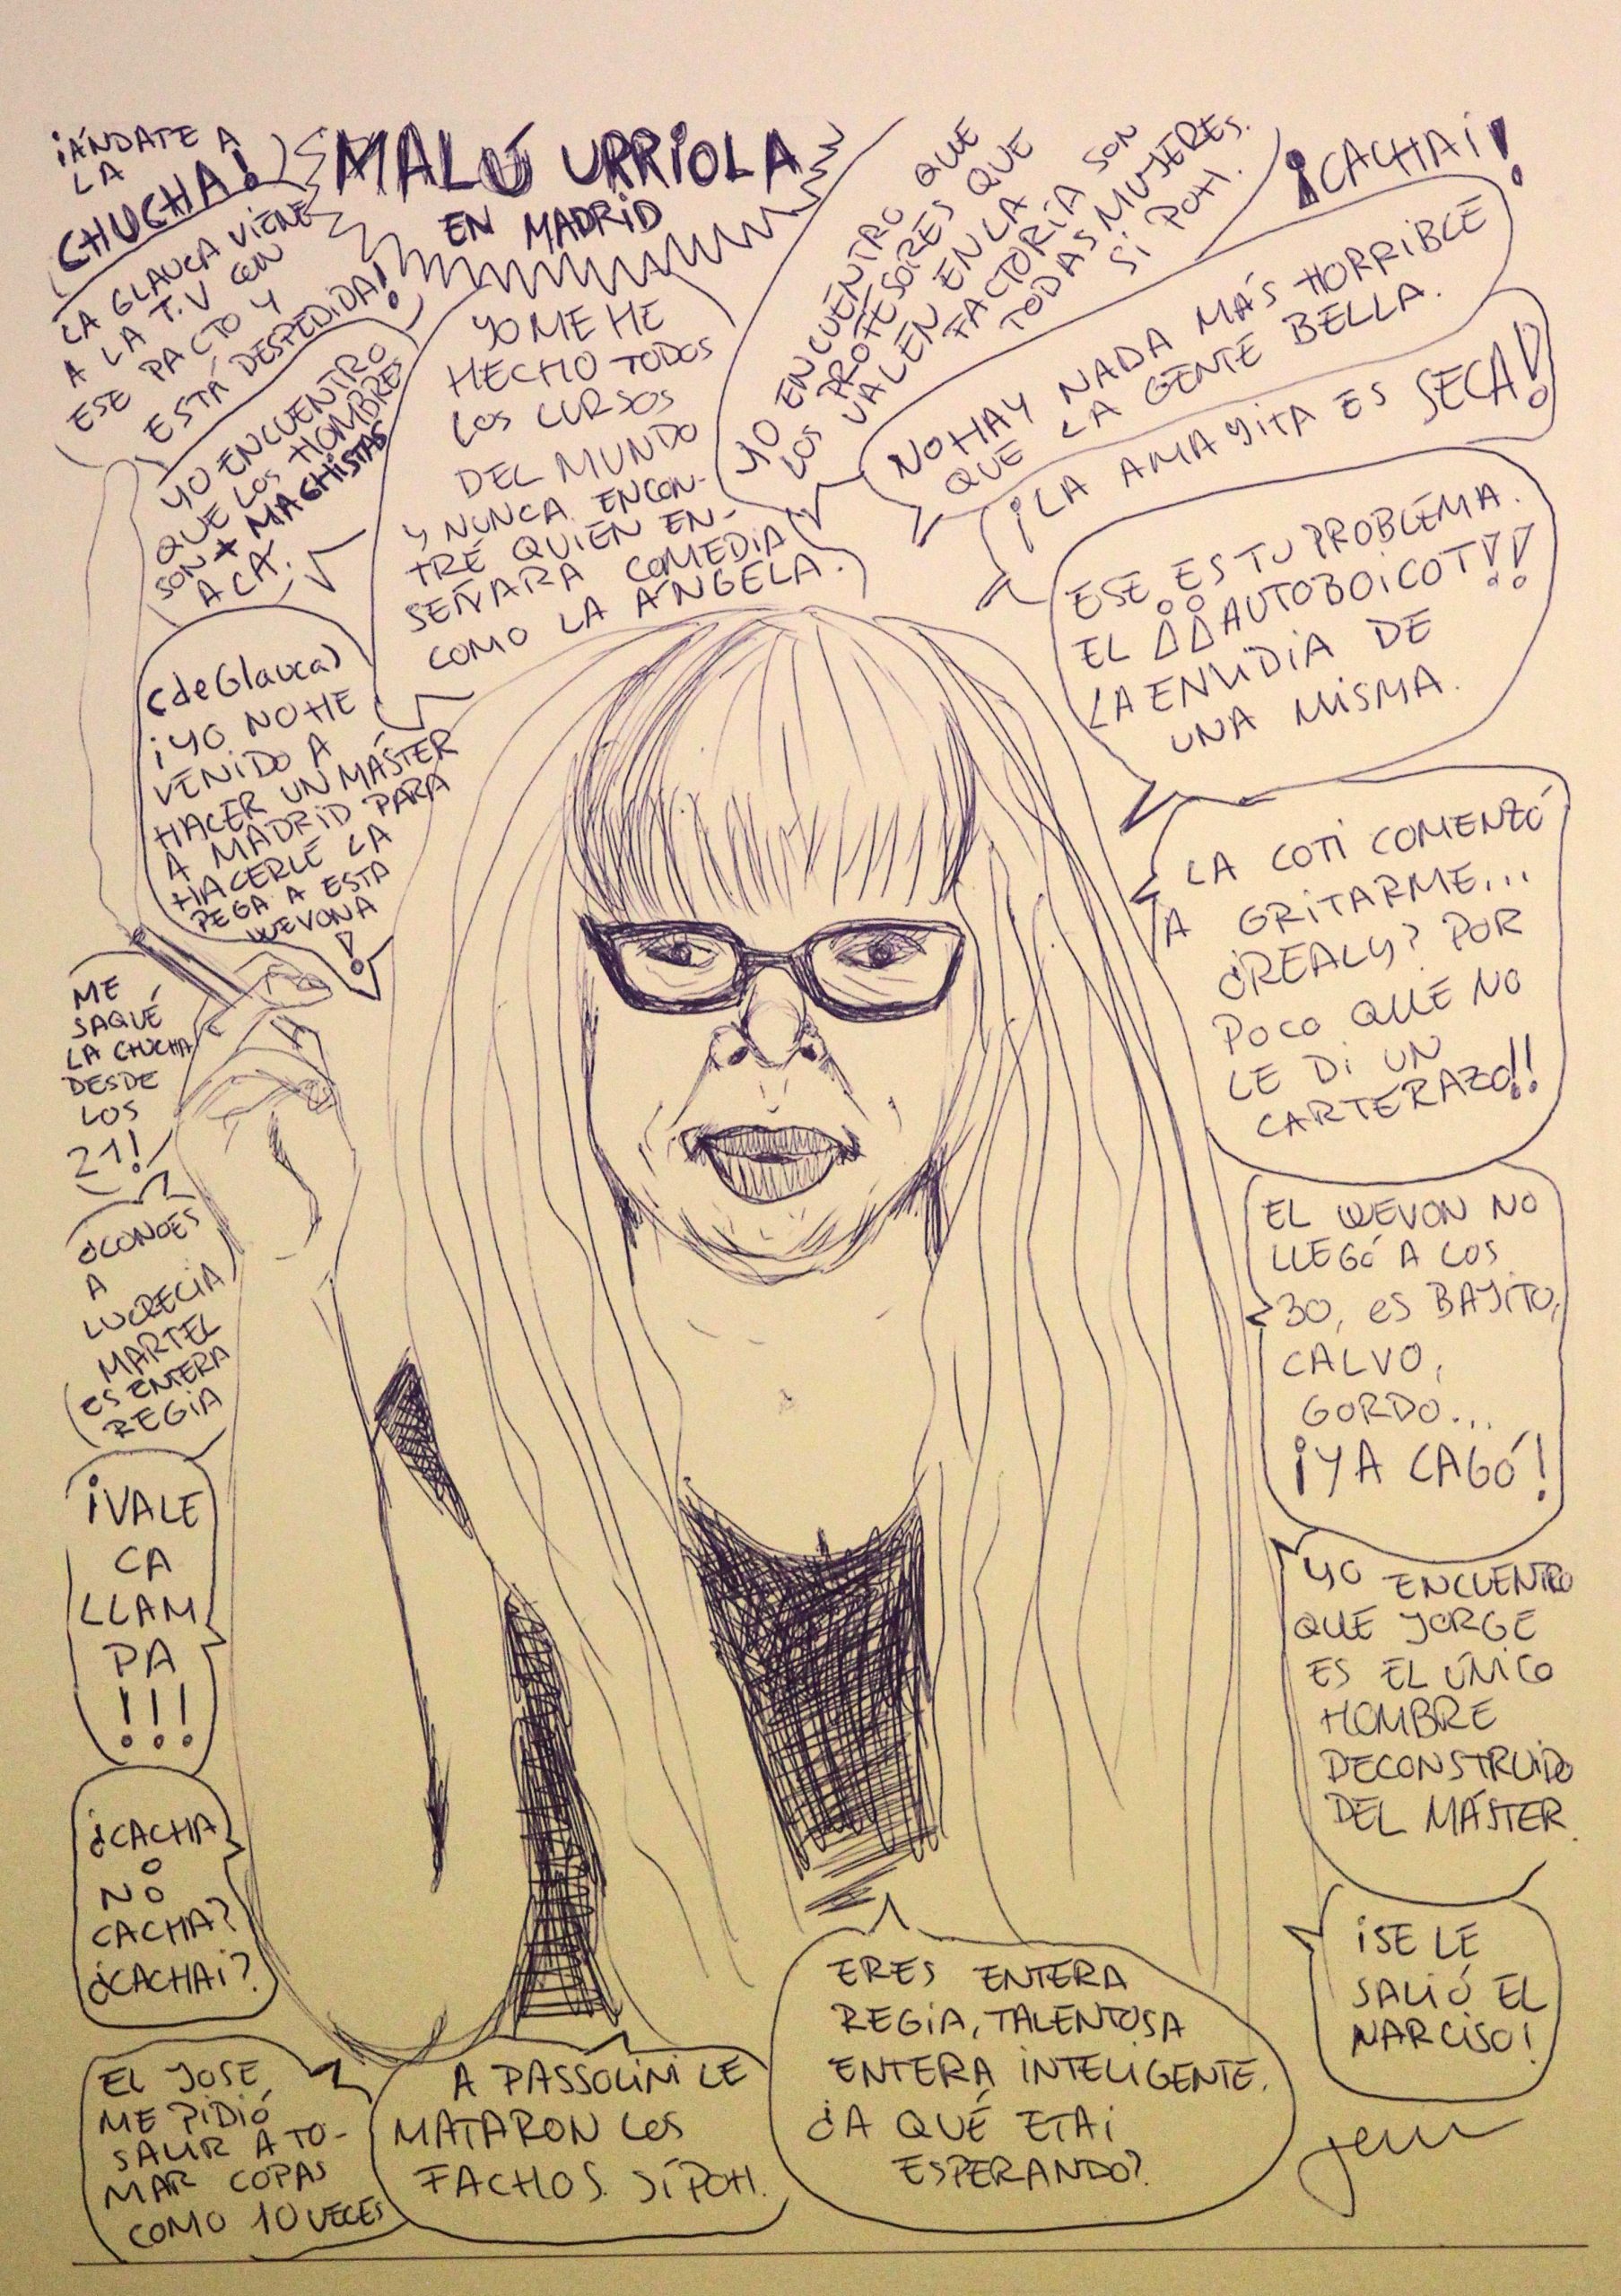 ¡ÁNDATE A
LA
CHUCHA!
MALÚ URRIOLA
EN MADRID
LA GLAUCA VIENE
A LA T.V CON
ESE PACTO Y
ESTÁ DESPEDIDA!
YO ENCUENTRO
QUE LOS HOMBRES
SON + MACHISTAS
ACÁ.
YO ME HE
HECHO TODOS
LOS CURSOS
DEL MUNDO
Y NUNCA ENCON-
TRÉ QUIÉN EN-
SEÑARA COMEDIA
COMO LA ÁNGELA.
YO ENCUENTRO QUE
LOS PROFESORES QUE
VALEN EN LA
FACTORÍA SON
TODAS MUJERES.
SÍ POH.
¡CACHAI!
NO HAY NADA MÁS HORRIBLE
QUE LA GENTE BELLA.
¡LA AMAYITA ES SECA!
ESE ES TU PROBLEMA.
EL ¡¡AUTOBOICOT!!
LA ENVIDIA DE
UNA MISMA.
(de Glauca)
¡YO NO HE
VENIDO A
HACER UN MÁSTER
A MADRID PARA
HACERLE LA
PEGA A ESTA
WEVONA
!
LA COTI COMENZÓ
A GRITARME...
¿REALY? POR
POCO QUE NO
LE DI UN
CARTERAZO!!
ME
SAQUÉ
LA CHUCHA
DESDE
LOS
21!
¿CONOES
A
LUCRECIA
MARTEL
ES ENTERA
REGIA
EL WEVON NO
LLEGÓ A LOS
30, ES BAJITO,
CALVO,
GORDO...
¡YA CAGÓ!
¡VALE
CA
LLAM
PA
!!!
YO ENCUENTRO
QUE JORGE
ES EL ÚNICO
HOMBRE
DECONSTRUIDO
DEL MÁSTER.
¿CACHA
O
NO
CACHA?
¿CACHAI?
¡SE LE
SALIÓ EL
NARCISO!
EL JOSE
ME PIDIÓ
SALIR A TO-
MAR COPAS
COMO 10 VECES
A PASSOLINI LE
MATARON LOS
FACHOS. SÍ POH.
ERES ENTERA
REGIA, TALENTOSA
ENTERA INTELIGENTE.
¿A QUÉ ETAI
ESPERANDO?